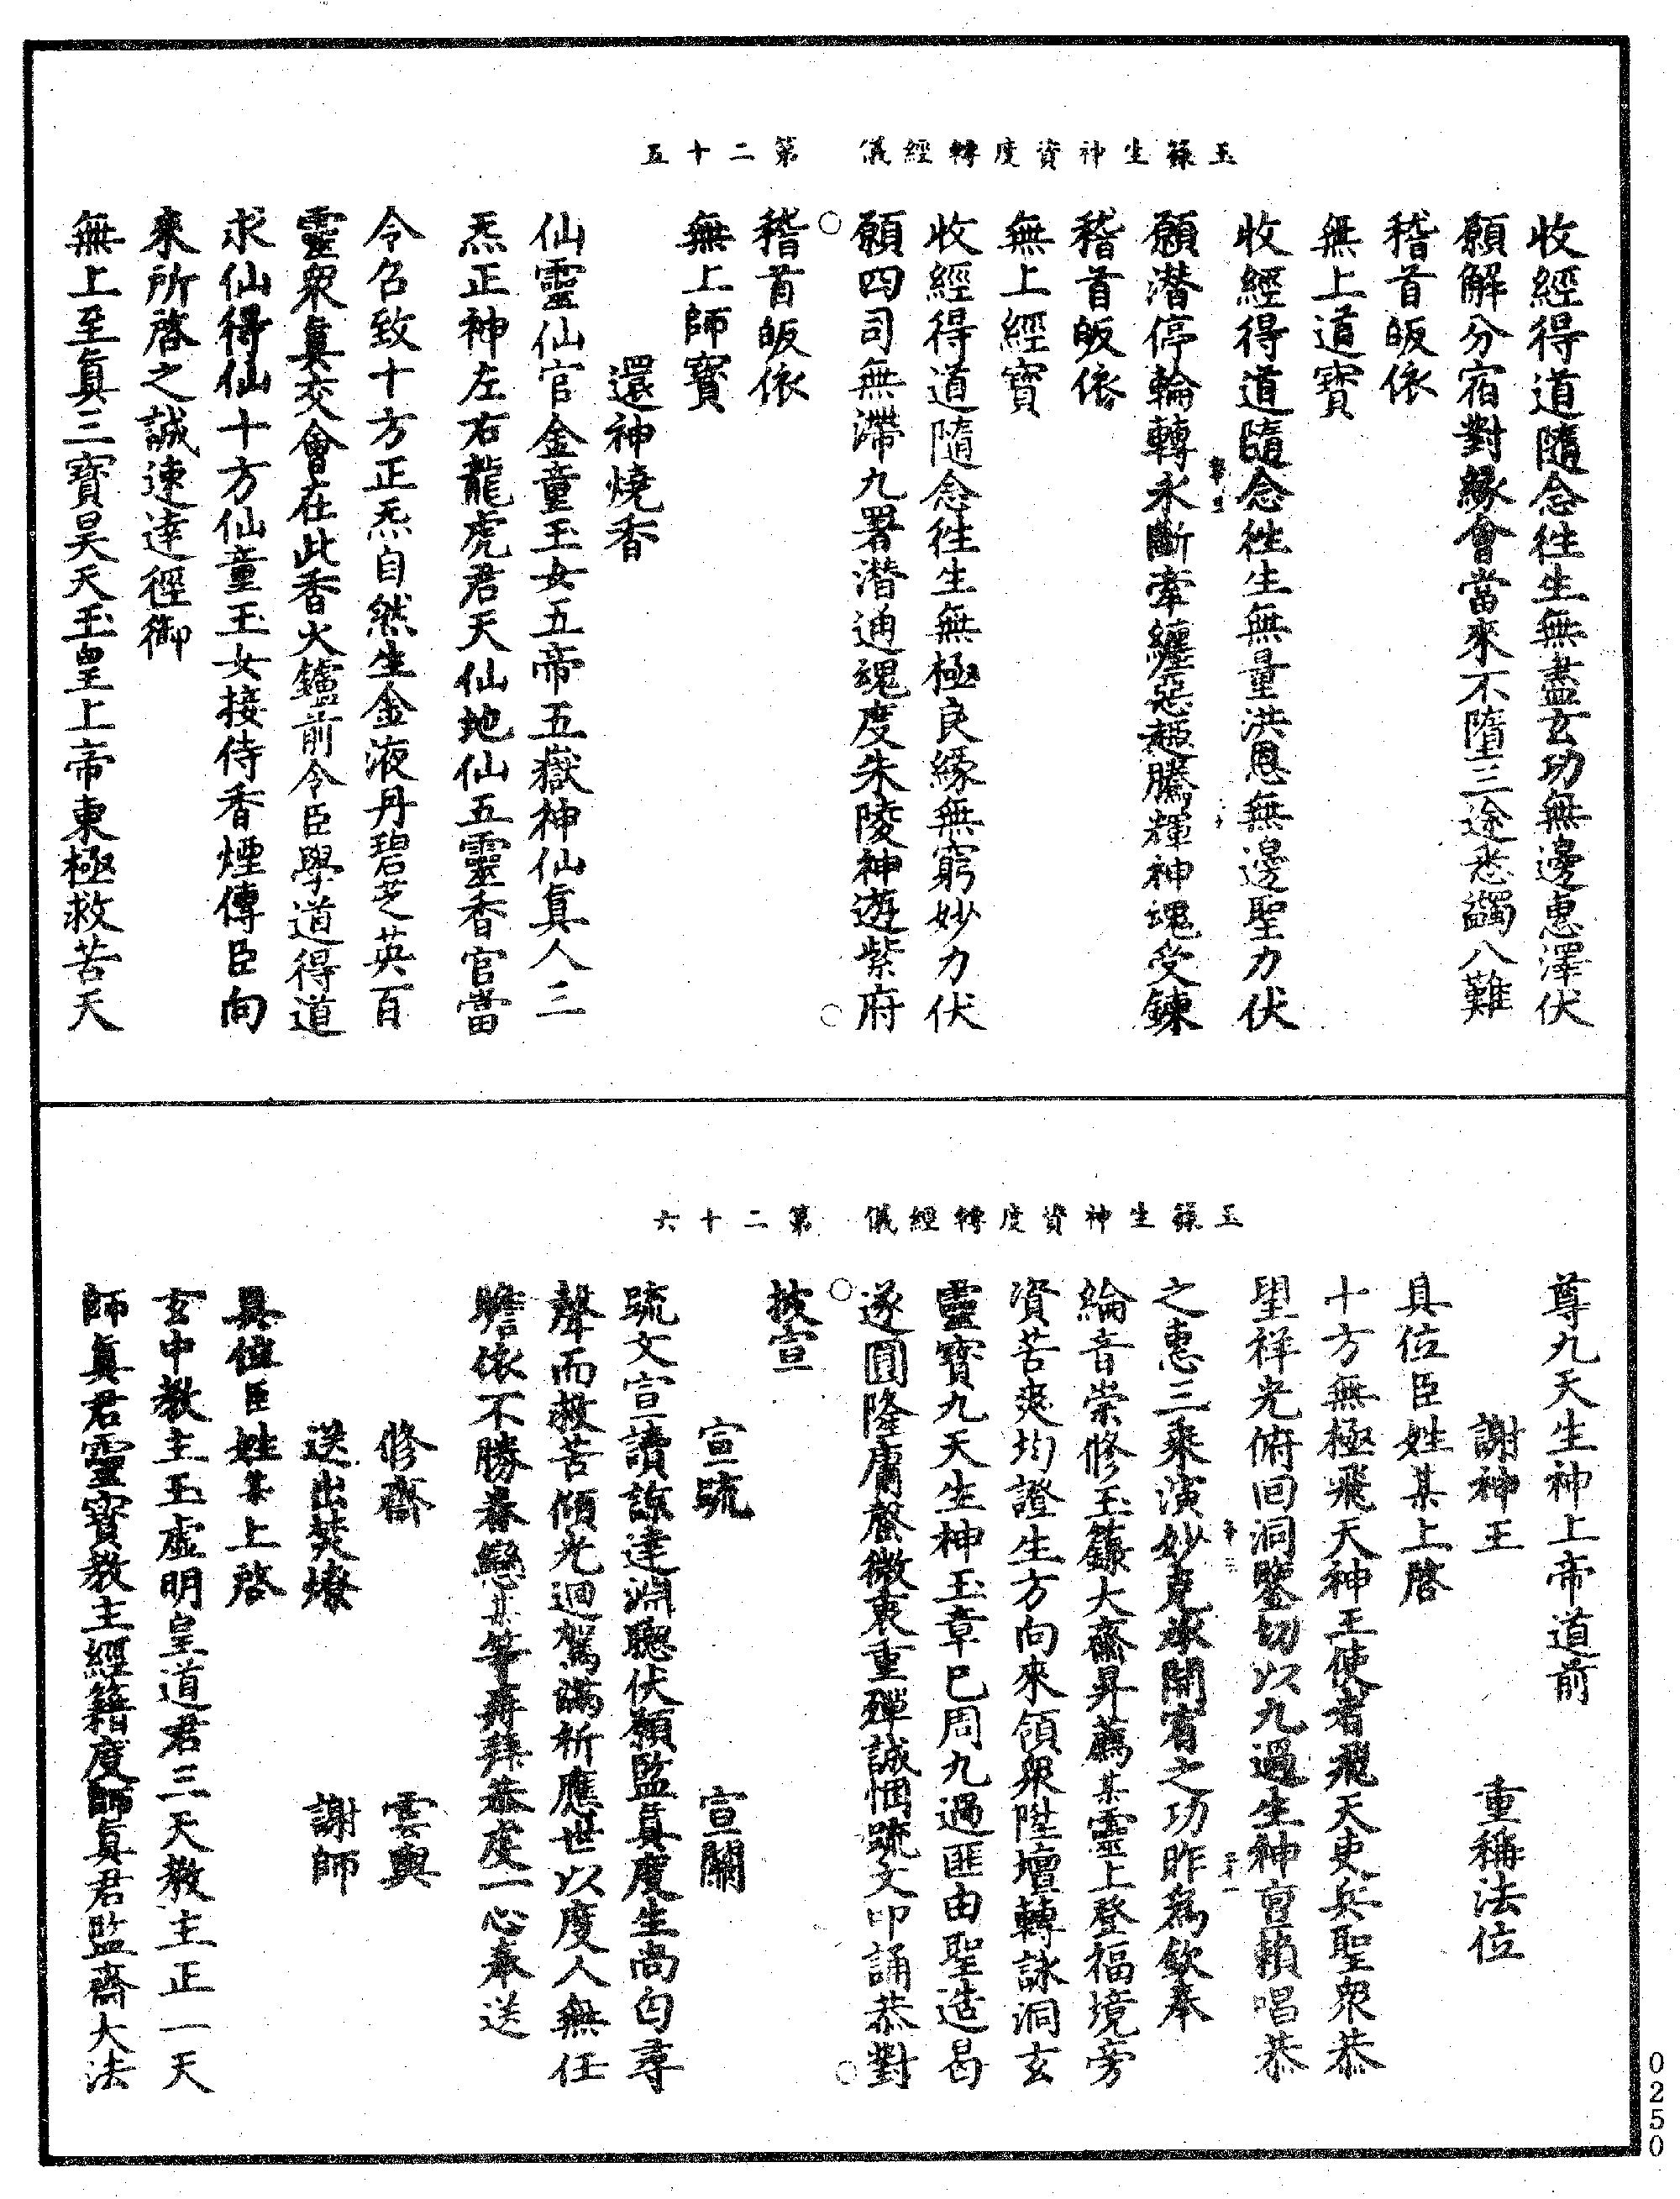 玉籙生神資度轉經儀　第二十五
收經得道隨念往生無盡玄功無邊惠澤伏
願解分宿對緣會當來不墮三途悉蠲八難
稽首皈依
無上道寶
收經得道隨念往生無量洪恩無邊聖力伏
願潛停輪轉永斷牽纏惡趣騰輝神魂受鍊
稽首皈依
無上經寶
收經得道隨念往生無極良緣無窮妙力伏
願四司無滯九署潛通魂度朱陵神遊紫府
稽首皈依
無上師寶
還神燒香
仙靈仙官金童玉女五帝五嶽神仙眞人三
炁正神左右龍虎君天仙地仙五靈香官當
令召致十方正炁自然生金液丹碧芝英百
靈衆眞交會在此香火鑪前令臣學道得道
求仙得仙十方仙童玉女接侍香煙傳臣向
來所啓之誠速達徑御
無上至眞三寶昊天玉皇上帝東極救苦天
玉籙生神資度轉經儀　第二十六
尊九天生神上帝道前
謝神王　重稱法位
具位臣姓某上啓
十方無極飛天神王使者飛天吏兵聖衆恭
望祥光俯回洞鑒切以九過生神亶賴唱恭
之惠三乘演妙克承開宥之功昨爲欽奉
綸音崇修玉籙大齋昇薦某靈上登福境旁
資苦爽均證生方向來領衆陞壇轉詠洞玄
靈寶九天生神玉章巳周九過匪由聖造曷
遂圓隆庸罄微衷重殫誠悃䟽文卬誦恭對
披宣
宣䟽　宣關
䟽文宣讀諒達淵聰伏願監眞度生尚匃尋
聲而救苦傾光迴駕滿祈應世以度人無任
瞻依不勝眷戀某等再拜恭虔一心奉送
修齋　雲輿
送出焚燎　謝師
具位臣姓某上啓
玄中教主玉虛明皇道君三天教主正一天
師眞君靈寶教主經籍度師眞君監齋大法
0250